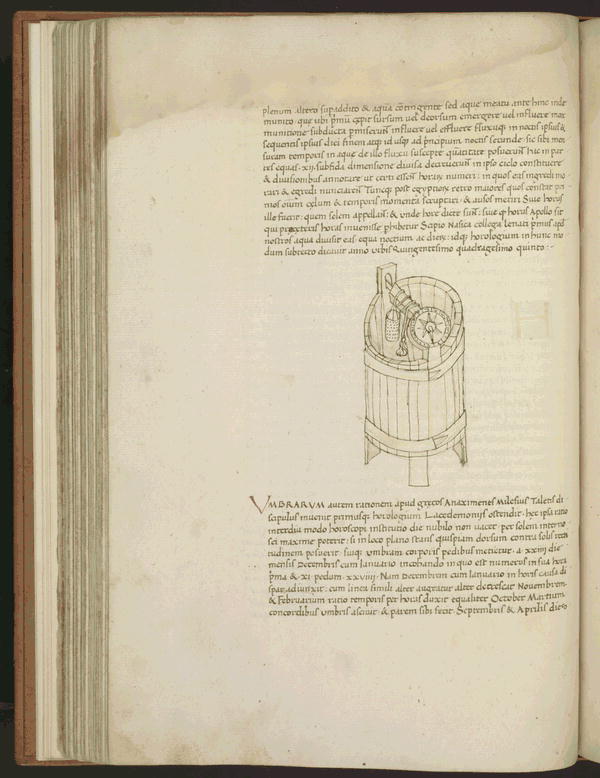 plenum altero supaddito & aqua cōtingente sed aque meatu ante hinc inde
munito. que ubi pmū cepit sursum vel deorsum emergere vel influere mox
munitione subducta pmiserunt influere vel effluere fluxuq; in noctis ipsius &
sequentis ipsius diei finem atq; id usq; ad pncipium noctis secunde. sic sibi men
suram temporis in aque de illo fluxu suscepte quātitate posuerunt hic in par
tes equas .xij. subfida dimensione divisa decreverunt in ipso ciclo constituere
& divisionibus annotare ut certi essent horarum numeri: in quos eas ingredi mo
rari & egredi nunciarent Tuncq; post egyptios retro maiores quos constat pri
mos oium celum & temporis momenta scruptari. & ausos metiri Sive horus
ille fuerit: quem solem appellant: & unde hore dicte sint: sive q horus Apollo sit
qui pre ceteris horas invenisse phibetur Scipio Nasica collega Lenati pmus apd
nostros aqua divisit eas equa noctium ac dierum: idq; horologium in hunc mo
dum subtecto dicavit anno urbis quingentesimo quadragesimo quinto:~
VMBRARVM autem rationem apud grecos Anaximenes Milesius Taletis di
scipulus invenit primusq; horologium Lacedemonijs ostendit. hec ipsa ratio
interdiu modo horoscopi institutio die nubilo non vacet. per solem interno
sci maxime poterit: si in loco plano stans quispiam dorsum contra solis recti
tudinem posuerit. suaq; umbram corporis pedibus metietur. a xxiiij die
mensis Decembris cum Ianuario incohando in quo est numerus in sua hora
pma & xi pedum .xxviiij. Nam Decembrem cum Ianuario in horis causa di
spar adiunxit: cum lineis simili alter augeatur alter decrescat Novembrem
& Februarium ratio temporis per horas duxit equaliter October Martium
concordibus umbris ascivit & parem sibi fecit Septembris & Aprilis dies